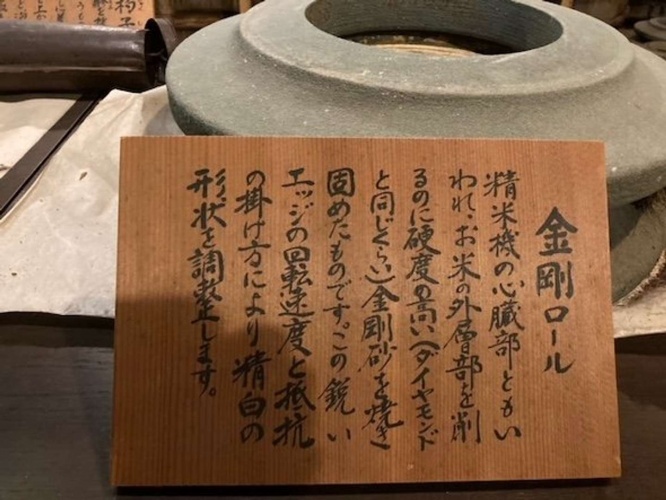 金剛ロール
精米機の心臓部ともい
われ、お米の外層部を削
るのに硬度の高い(ダイヤモンド
と同じくらい)金剛砂を焼き
固めたものです。この鋭い
エッジの回転速度と抵抗
の掛け方により精白の
形状を調整します。
杓子